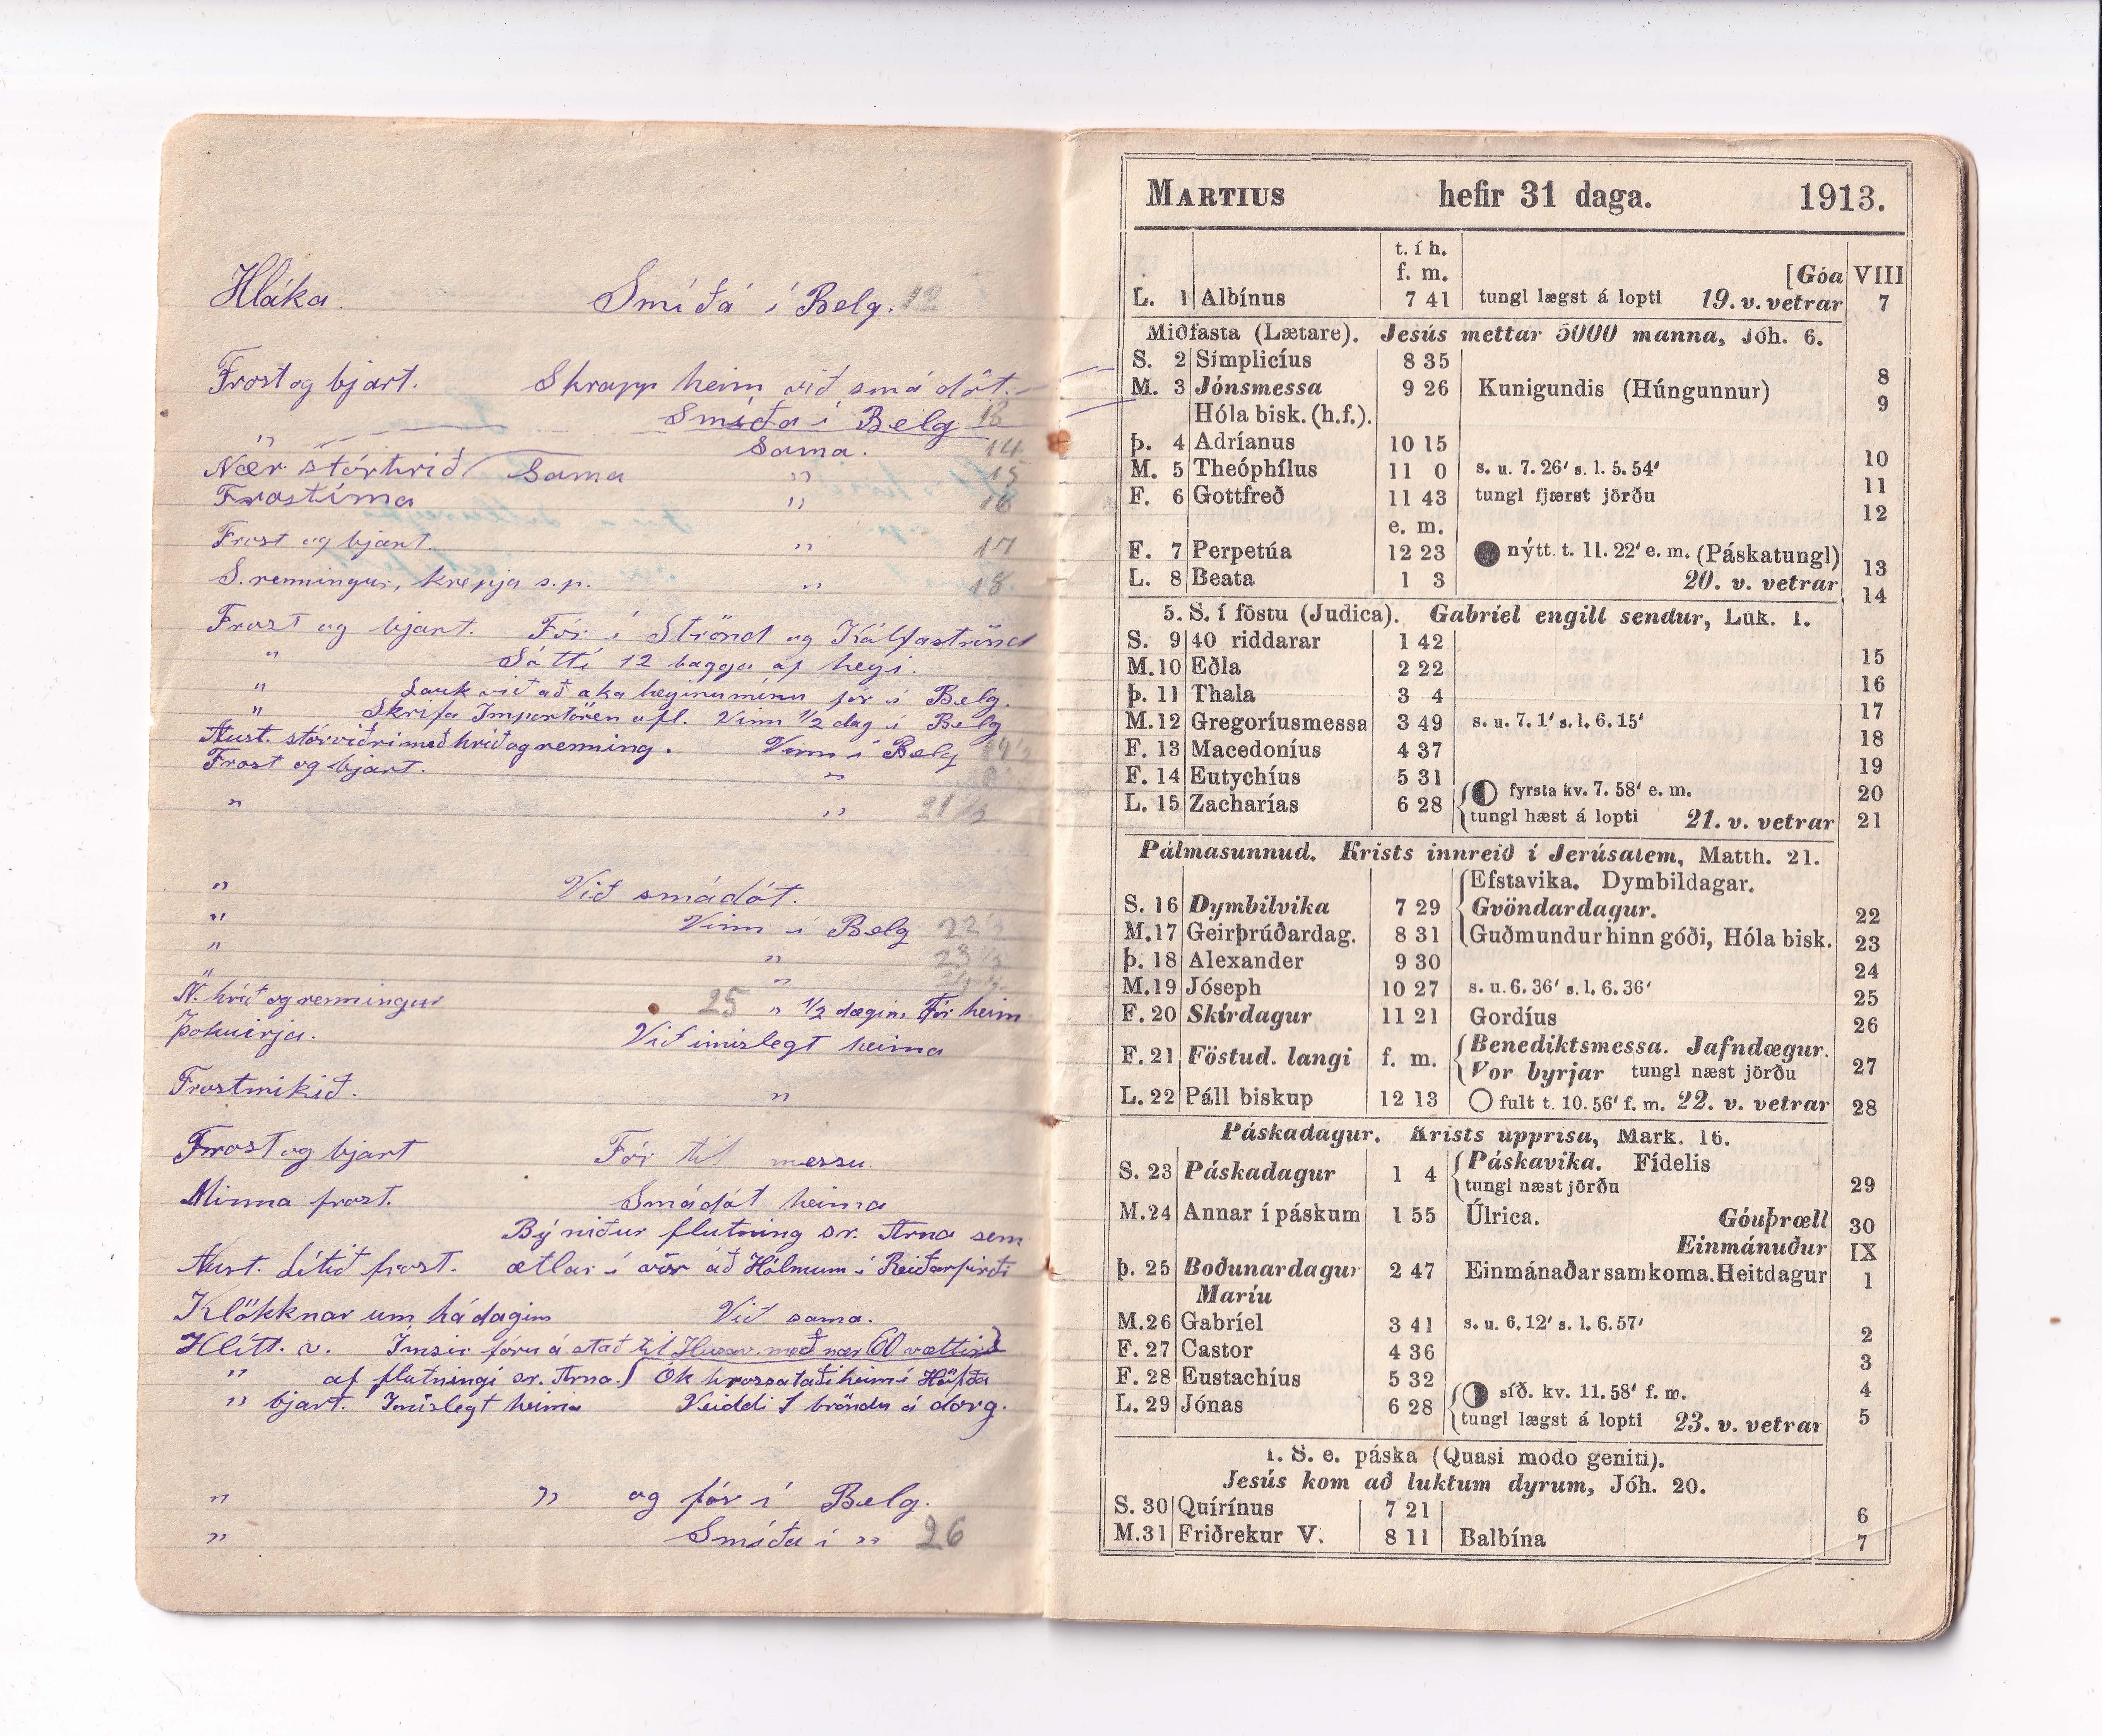 Hláka. Smíða í Belg. 12
Frost og bjart. Skrapp heim við smá dót.
Smíða í Belg 13
" Sama. 14
Nær stórhríð Sama " 15
Frostíma " 16
Frost og bjart. " 17
S. renningur, krepja s.p. " 18
Frost og bjart. Fór í Strönd og Kálfaströnd
" Sótti 12 bagga af heyi.
" Lauk við að aka heyinu mínu fór í Belg.
" Skrifa Importören afl. Vinn 1/2 dag í Belg
Aust. stórviðri með hríð og renning. Vinn í Belg 19 1/2
Frost og bjart. "
" " 21 1/2
" Við smádót.
" Vinn í Belg 22 1/2
" " 23 1/2
" "
N. hríð og renningur 25 " 1/2 daginn Fór heim
Þokuirja. Við imislegt heima
Frostmikið. "
Frost og bjart Fór til messu.
Minna frost. Smádót heima
Bý niður flutning sr. Arna sem
Aust. Lítið frost. ætlar í vor að Hólmum í Reiðarfirði
Klökknar um hádaginn Við sama.
Hlítt. v. Imsir fóru á stað til Húsav. með nær 60 vættir
" af flutningi sr. Arna. Ók hrossataði heim í Höfða
" bjart. Imislegt heima Veiddi 1 bröndu á dorg.
" " og fór í Belg.
" Smíða í " 26
MARTIUS hefir 31 daga. 1913.
t. í h.
f. m. [Góa VIII
L. 1 Albínus 7 41 tungl lægst á lopti 19. v. vetrar 7
Miðfasta (Lætare). Jesús mettar 5000 manna, Jóh. 6.
S. 2 Simplicíus 8 35 8
M. 3 Jónsmessa 9 26 Kunigundis (Húngunnur) 9
Hóla bisk. (h.f.).
Þ. 4 Adríanus 10 15 10
M. 5 Theóphílus 11 0 s. u. 7. 26' s. l. 5. 54' 11
F. 6 Gottfreð 11 43 tungl fjærst jörðu 12
e. m.
F. 7 Perpetúa 12 23 nýtt t. 11. 22' e. m. (Páskatungl) 13
L. 8 Beata 1 3 20. v. vetrar 14
5. S. í föstu (Judica). Gabríel engill sendur, Lúk. 1.
S. 9 40 riddarar 1 42 15
M. 10 Eðla 2 22 16
Þ. 11 Thala 3 4 17
M. 12 Gregoríusmessa 3 49 s. u. 7. 1' s. l. 6. 15' 18
F. 13 Macedoníus 4 37 19
F. 14 Eutychíus 5 31 20
L. 15 Zacharías 6 28 fyrsta kv. 7. 58' e. m.
tungl hæst á lopti 21. v. vetrar 21
Pálmasunnud. Krists innreið í Jerúsalem, Matth. 21.
Efstavika. Dymbildagar.
S. 16 Dymbilvika 7 29 Gvöndardagur. 22
M. 17 Geirþrúðardag. 8 31 Guðmundur hinn góði, Hóla bisk. 23
Þ. 18 Alexander 9 30 24
M. 19 Jóseph 10 27 s. u. 6. 36' s. l. 6. 36' 25
F. 20 Skírdagur 11 21 Gordíus 26
F. 21 Föstud. langi f. m. Benediktsmessa. Jafndægur. 27
Vor byrjar tungl næst jörðu
L. 22 Páll biskup 12 13 fult t. 10. 56' f. m. 22. v. vetrar 28
Páskadagur. Krists upprisa, Mark. 16.
S. 23 Páskadagur 1 4 Páskavika. Fídelis
tungl næst jörðu 29
M. 24 Annar í páskum 1 55 Úlrica. Góuþræll 30
Einmánuður IX
Þ. 25 Boðunardagur 2 47 Einmánaðarsamkoma. Heitdagur 1
Maríu
M. 26 Gabríel 3 41 s. u. 6. 12' s. l. 6. 57' 2
F. 27 Castor 4 36 3
F. 28 Eustachíus 5 32 4
L. 29 Jónas 6 28 síð. kv. 11. 58' f. m.
tungl lægst á lopti 23. v. vetrar 5
1. S. e. páska (Quasi modo geniti).
Jesús kom að luktum dyrum, Jóh. 20.
S. 30 Quírínus 7 21 6
M. 31 Friðrekur V. 8 11 Balbína 7